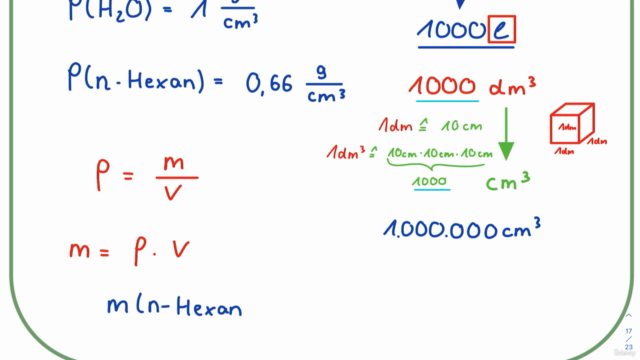 ρ(H₂O) = 1 g/cm³
ρ(n-Hexan) = 0,66 g/cm³
ρ = m/V
m = ρ · V
m(n-Hexan
1000 l
1000 dm³
1dm ≙ 10cm
1dm³ ≙ 10cm·10cm·10cm
1000 cm³
1.000.000 cm³
1dm
1dm
1dm
17
/
23